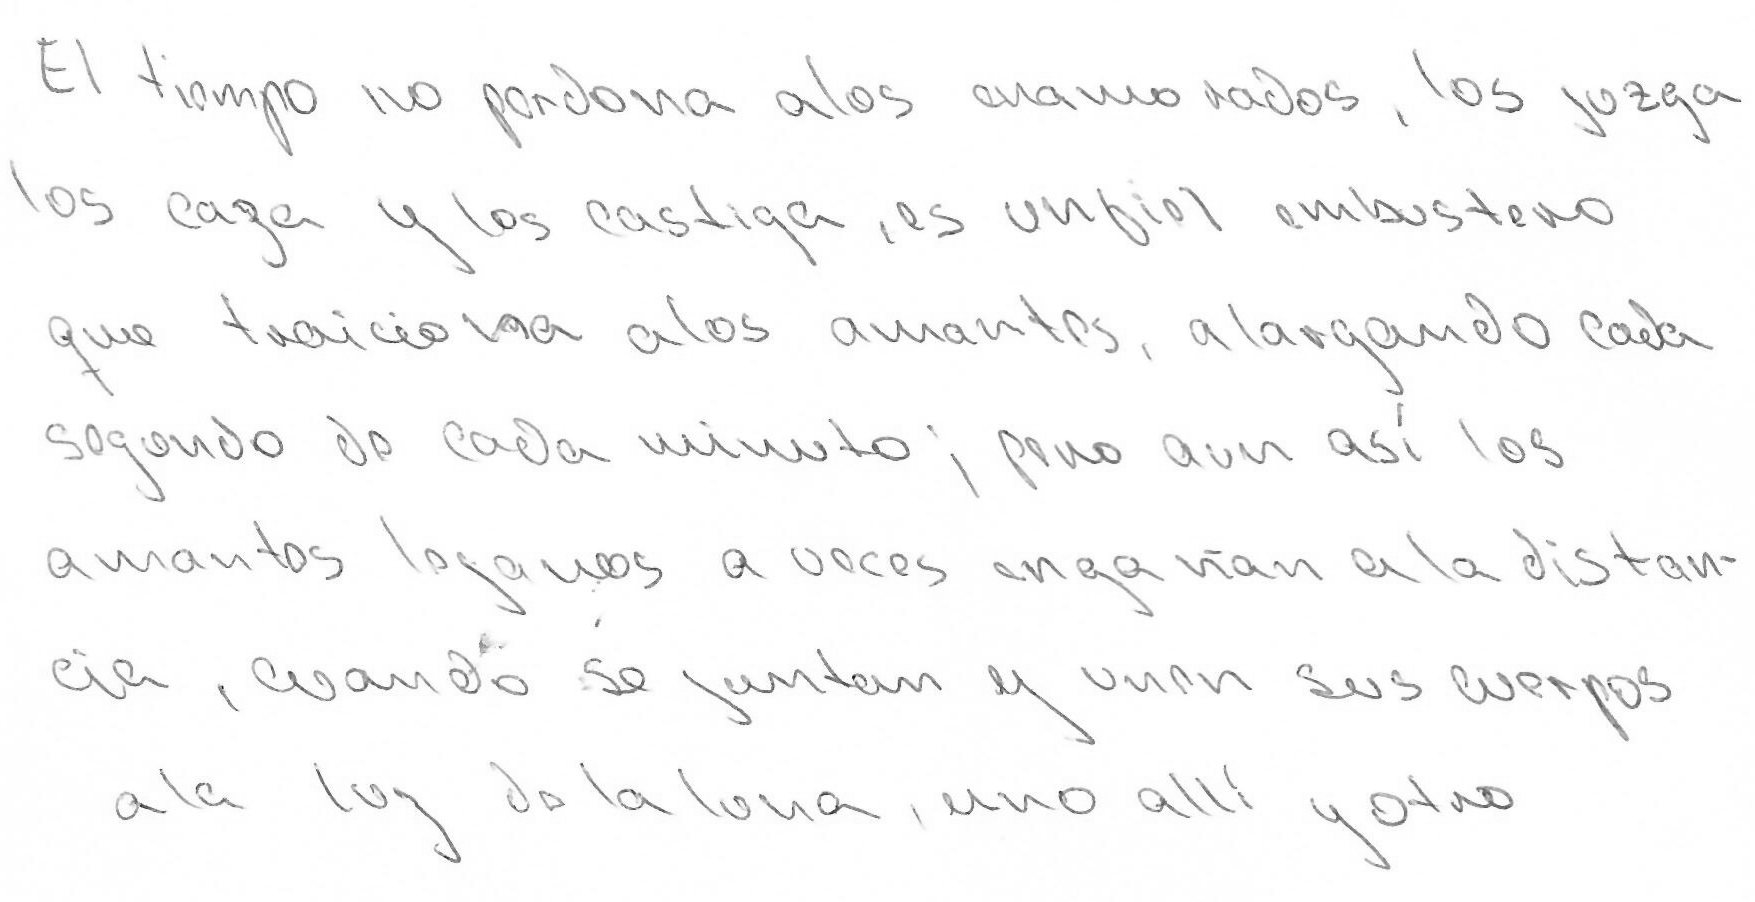 El tiempo no perdona a los enamorados, los juzga
los caza y los castiga, es un fiel embustero
que traiciona a los amantes, alargando cada
segundo de cada minuto; pero aun así los
amantes a veces engañan a la distan-
cia, cuando se juntan y unen sus cuerpos
a la luz de la luna, uno allí y otro